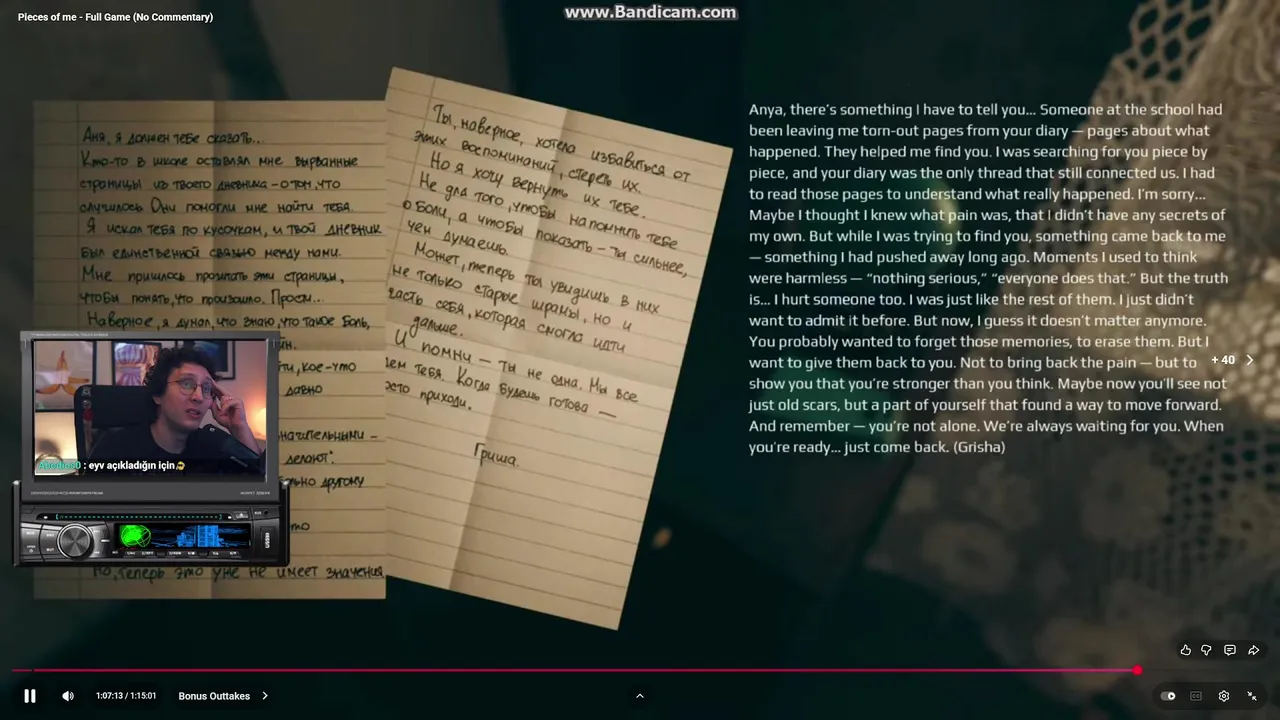 Pieces of me - Full Game (No Commentary)
www.Bandicam.com
Аня, я должен тебе сказать...
Кто-то в школе оставлял мне вырванные
страницы из твоего дневника - о том, что
случилось. Они помогли мне найти тебя.
Я искал тебя по кусочкам, и твой дневник
был единственной связью между нами.
Мне пришлось прочитать эти страницы,
чтобы понять, что произошло. Прости...
Наверное, я думал, что знаю, что такое боль,
кое-что
давно
значительными -
делают".
другому
Но, теперь это уже не имеет значения.
Ты, наверное, хотела избавиться от
этих воспоминаний, стереть их.
Но я хочу вернуть их тебе.
Не для того, чтобы напомнить тебе
о боли, а чтобы показать - ты сильнее,
чем думаешь.
Может, теперь ты увидишь в них
не только старые шрамы, но и
часть себя, которая смогла идти
дальше.
И помни — ты не одна. Мы все
ждем тебя. Когда будешь готова —
просто приходи.
Гриша.
Anya, there's something I have to tell you... Someone at the school had
been leaving me torn-out pages from your diary — pages about what
happened. They helped me find you. I was searching for you piece by
piece, and your diary was the only thread that still connected us. I had
to read those pages to understand what really happened. I'm sorry...
Maybe I thought I knew what pain was, that I didn't have any secrets of
my own. But while I was trying to find you, something came back to me
— something I had pushed away long ago. Moments I used to think
were harmless — “nothing serious,” “everyone does that.” But the truth
is... I hurt someone too. I was just like the rest of them. I just didn't
want to admit it before. But now, I guess it doesn't matter anymore.
You probably wanted to forget those memories, to erase them. But I
want to give them back to you. Not to bring back the pain — but to
show you that you're stronger than you think. Maybe now you'll see not
just old scars, but a part of yourself that found a way to move forward.
And remember — you're not alone. We're always waiting for you. When
you're ready... just come back. (Grisha)
+40
: eyv açıkladığın için
1:07:13 / 1:15:01
Bonus Outtakes